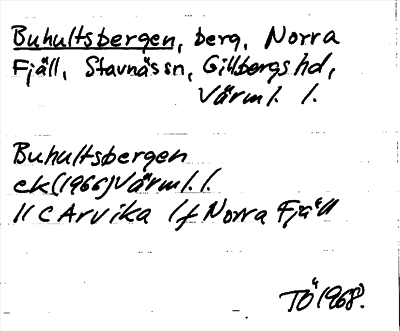 Buhultsbergen, berg, Norra
Fjäll, Stavnäs sn, Gillbergs hd,
Värml. l.
Buhultsbergen
ek (1966) Värml. l.
11 C Arvika 1f Norra Fjäll
TÖ 1968.